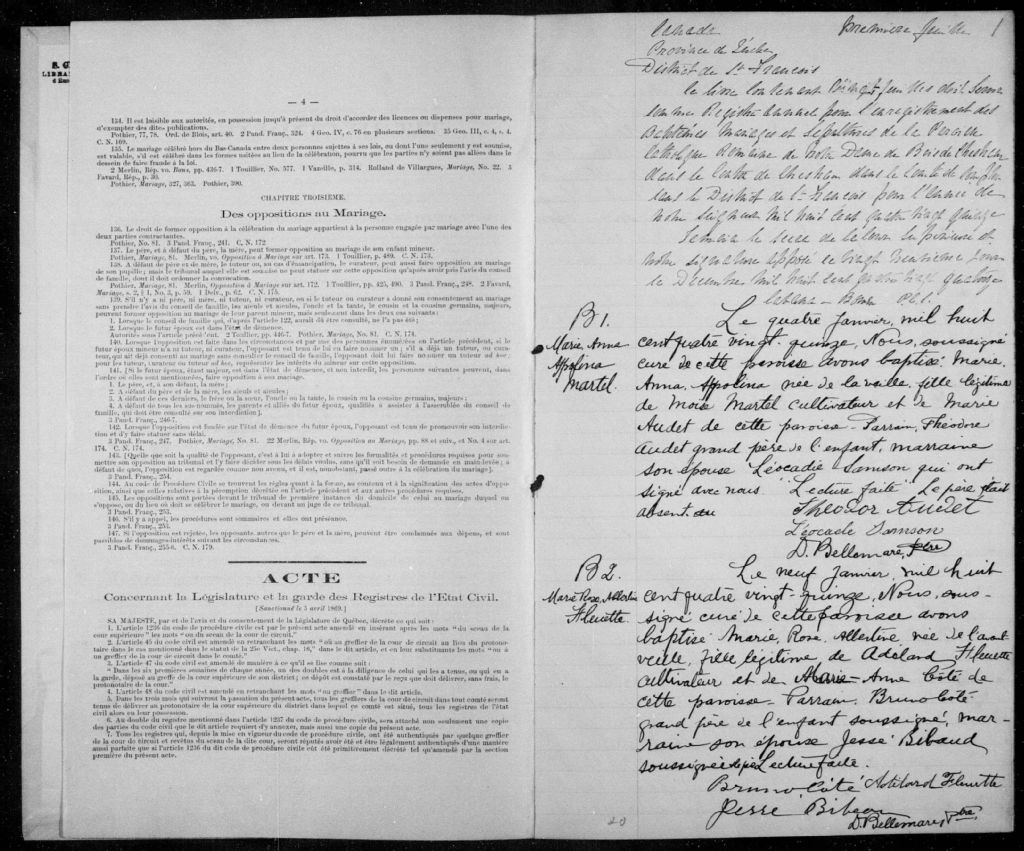 S. G
LIBRA
— 4 —
134. Il est laisible aux autorités, en possession jusqu'à présent du droit d'accorder des licences ou dispenses pour mariage,
d'exempter des dites publications.
Pothier, 77, 78. Ord. de Blois, art. 40. 2 Pand. Franç., 324. 4 Geo. IV, c. 76 en plusieurs sections. 35 Geo. III, c. 4, s. 4.
C. N. 169.
135. Le mariage célébré hors du Bas-Canada entre deux personnes sujettes à ses lois, ou dont l'une seulement y est soumise,
est valable, s'il est célébré dans les formes usitées au lieu de la célébration, pourvu que les parties n'y soient pas allées dans le
dessein de faire fraude à la loi.
2 Merlin, Rép. vo. Bans, pp. 436-7. 1 Touillier, No. 577. 1 Vazeille, p. 314. Rolland de Villargues, Mariage, No. 22. 3
Favard, Rép., p. 30.
Pothier, Mariage, 327, 363. Pothier, 390.
CHAPITRE TROISIEME.
Des oppositions au Mariage.
136. Le droit de former opposition à la célébration du mariage appartient à la personne engagée par mariage avec l'une des
deux parties contractantes.
Pothier, No. 81. 3 Pand. Franç., 241. C. N. 172
137. Le père, et à défaut du père, la mère, peut former opposition au mariage de son enfant mineur.
Pothier, Mariage, 81. Merlin, vo. Opposition à Mariage sur art. 173. 1 Touillier, p. 489. C. N. 173.
138. A défaut de père et de mère, le tuteur ou, au cas d'émancipation, le curateur, peut aussi faire opposition au mariage
de son pupille; mais le tribunal auquel elle est soumise ne peut statuer sur cette opposition qu'après avoir pris l'avis du conseil
de famille, dont il doit ordonner la convocation.
Pothier, Mariage, 81. Merlin, Opposition à Mariage sur art. 172. 1 Touillier, pp. 425, 490. 3 Pand. Franç., 248. 2 Favard,
Mariage, s. 2, § 1, No. 3, p. 59. 1 Delv., p. 62. C. N. 175.
139. S'il n'y a ni père, ni mère, ni tuteur, ni curateur, ou si le tuteur ou curateur a donné son consentement au mariage
sans prendre l'avis du conseil de famille, les aïeuls et aïeules, l'oncle et la tante, le cousin et la cousine germains, majeurs,
peuvent former opposition au mariage de leur parent mineur, mais seulement dans les deux cas suivants:
1. Lorsque le conseil de famille qui, d'après l'article 122, aurait dû être consulté, ne l'a pas été;
2. Lorsque le futur époux est dans l'état de démence.
Autorités sous l'article précédent. 2 Touillier, pp. 446-7. Pothier, Mariage, No. 81. C. N. 174.
140. Lorsque l'opposition est faite dans les circonstances et par une des personnes énumérées en l'article précédent, si le
futur époux mineur n'a ni tuteur, ni curateur, l'opposant est tenu de lui en faire nommer un; s'il a déjà un tuteur, ou cura-
teur, qui ait déjà consenti au mariage sans consulter le conseil de famille, l'opposant doit lui faire nommer un tuteur ad hoc;
pour les tuteur, curateur ou tuteur ad hoc, représenter les intérêts du mineur sur cette opposition.
141. [Si le futur époux, étant majeur, est dans l'état de démence, et non interdit, les personnes suivantes peuvent, dans
l'ordre où elles sont mentionnées, faire opposition à son mariage.
1. Le père, et, à son défaut, la mère;
2. A défaut du père et de la mère, les aïeuls et aïeules;
3. A défaut de ces derniers, le frère ou la sœur, l'oncle ou la tante, le cousin ou la cousine germains, majeurs;
4. A défaut de tous les sus-nommés, les parents et alliés du futur époux, qualifiés à assister à l'assemblée du conseil de
famille, qui doit être consulté sur son interdiction].
3 Pand. Franç., 246-7.
142. Lorsque l'opposition est fondée sur l'état de démence du futur époux, l'opposant est tenu de promouvoir son interdic-
tion et d'y faire statuer sans délai.
3 Pand. Franç., 247. Pothier, Mariage, No. 81. 22 Merlin, Rép. vo. Opposition au Mariage, pp. 88 et suiv., et No. 4 sur art.
174. C. N. 174.
143. [Quelle que soit la qualité de l'opposant, c'est à lui à adopter et suivre les formalités et procédures requises pour sou-
mettre son opposition au tribunal et l'y faire décider sous les délais voulus, sans qu'il soit besoin de demande en main-levée; à
défaut de quoi, l'opposition est regardée comme non avenue, et il est, nonobstant, passé outre à la célébration du mariage].
3 Pand. Franç., 254.
144. Au code de Procédure Civile se trouvent les règles quant à la forme, au contenu et à la signification des actes d'oppo-
sition, ainsi que celles relatives à la péremption décrétée en l'article précédent et aux autres procédures requises.
145. Les oppositions sont portées devant le tribunal de première instance du domicile de celui au mariage duquel on
s'oppose, ou du lieu où doit se célébrer le mariage, ou devant un juge de ce tribunal.
3 Pand. Franç., 253.
146. S'il y a appel, les procédures sont sommaires et elles ont préséance.
3 Pand. Franç., 253.
147. Si l'opposition est rejetée, les opposants, autres que le père et la mère, peuvent être condamnés aux dépens, et sont
passibles de dommages-intérêts suivant les circonstances.
3 Pand. Franç., 255-6. C. N. 179.
ACTE
Concernant la Législature et la garde des Registres de l'Etat Civil.
[Sanctionné le 5 avril 1869.]
SA MAJESTE, par et de l'avis et du consentement de la Législature de Québec, décrète ce qui suit:
1. L'article 1236 du code de procédure civile est par le présent acte amendé en insérant après les mots "du sceau de la cour
supérieure" les mots "ou du sceau de la cour de circuit."
2. L'article 45 du code civil est amendé en retranchant les mots "où au greffier de la cour de circuit au lieu du protono-
taire dans le cas mentionné dans le statut de la 25e Vict., chap. 16," dans le dit article, et en leur substituants les mots "ou à
un greffier de la cour de circuit dans le comté."
3. L'article 47 du code civil est amendé de manière à ce qu'il se lise comme suit:
"Dans les six premières semaines de chaque année, un des doubles est à la diligence de celui qui les a tenus, ou qui en a
la garde, déposé au greffe de la cour supérieure de son district; ce dépôt est constaté par le reçu que doit délivrer, sans frais, le
protonotaire de la cour."
4. L'article 48 du code civil est amendé en retranchant les mots "au greffier" dans le dit article.
5. Dans les trois mois qui suivront la passation du présent acte, tous les greffiers de la cour de circuit dans tout comté seront
tenus de délivrer au protonotaire de la cour supérieure du district dans lequel ce comté est situé, tous les registres de l'état
civil alors en leur possession.
6. Au double du registre mentionné dans l'article 1237 du code de procédure civile, sera attaché non seulement une copie
des parties du code civil que le dit article requiert d'y annexer, mais aussi une copie du présent acte.
7. Tous les registres qui, depuis la mise en vigueur du code de procédure civile, ont été authentiqués par quelque greffier
de la cour de circuit et revêtus du sceau de la dite cour, seront réputés avoir été et être légalement authentiqués d'une manière
aussi parfaite que si l'article 1236 du dit code de procédure civile eût été primitivement décrété tel qu'amendé par la section
première du présent acte.
Canada
première feuille 1
Province de Québec
District de St François
Le livre contenant Vingt feuilles doit servir
comme Registre annuel pour l'enregistrement des
Baptêmes Mariages et Sépultures de la Paroisse
Catholique Romaine de Notre Dame de Bois de Chesham
dans le Canton de Chesham dans le Comté de Compton
dans le District de St François pour l'année de
notre Seigneur mil huit cent quatre vingt quinze
Témoin le sceau de la Cour Supérieure et
notre signature apposé ce vingt neuvième jour
de Décembre mil huit cent quatre vingt quatorze
B 1.
Marie, Anna
Appolina
Martel.
Le quatre Janvier, mil huit
cent quatre vingt-quinze, Nous, soussigné
curé de cette paroisse avons baptisé Marie,
Anna, Appolina née de la veille, fille légitime
de Moïse Martel cultivateur et de Marie
Audet de cette paroisse - Parrain, Théodore
Audet grand père de l'enfant, marraine
son épouse Léocadie Samson qui ont
signé avec nous. Lecture faite. Le père était
absent.
Theodor Audet
Léocadie Samson
D. Bellemare, Ptre
B 2.
Marie Rose, Albertine
Fleuette.
Le neuf Janvier, mil huit
cent quatre vingt-quinze, Nous, sous-
signé curé de cette paroisse avons
baptisé Marie, Rose, Albertine née de l'avant
veille, fille légitime de Adélard Fleuette
cultivateur et de Marie-Anne Côté de
cette paroisse - Parrain, Bruno Côté
grand père de l'enfant soussigné, mar-
raine son épouse Jessé Bibaud
soussignée Lecture faite.
Bruno Côté Adélard Fleuette
Jesse Bibeau
D. Bellemare, Ptre.
20